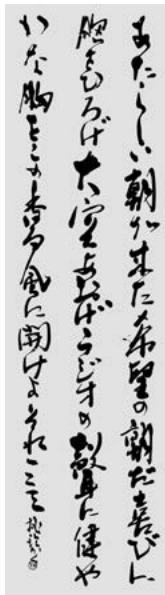 あたらしい朝が来た希望の朝だ喜びに
胸をひろげ大空あおげラジオの声に健や
かな胸をこの香る風に開けよそれ一二三